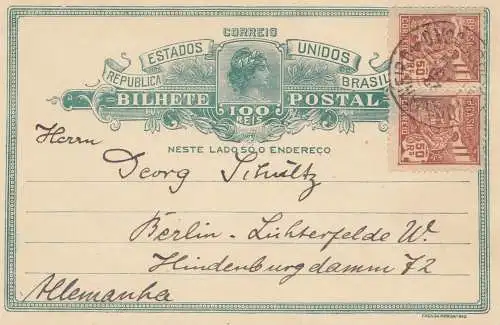 CORREIO
ESTADOS UNIDOS
REPUBLICA BRASIL
BILHETE POSTAL
100
REIS
NESTE LADO SÓ O ENDEREÇO
Herrn
Georg Schultz
Berlin-Lichterfelde W.
Hindenburgdamm 72
Allemanha
50
50